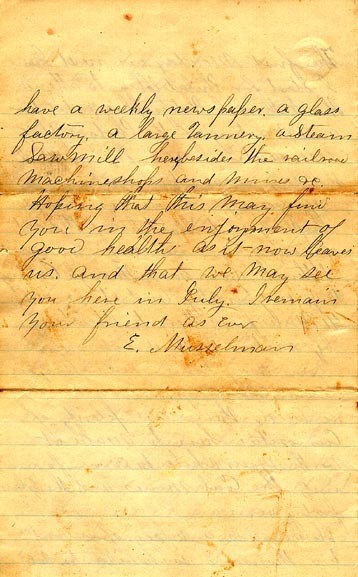 have a weekly newspaper. a glass
factory, a large Tannery, a Steam
Sawmill here besides the railroa
machineshops and mines &c.
Hoping that this may find
you in the enjoyment of
good health as it now leaves
us. and that we may see
you here in July. I remain
Your friend as Ever
E. Musselman